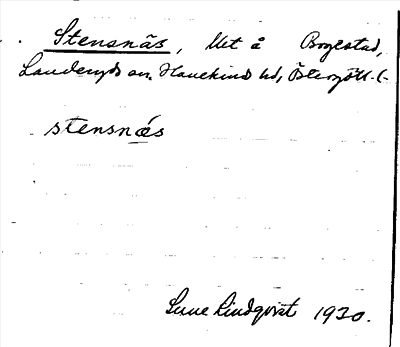 Stensnäs, Utt å Bogestad,
Landeryds sn. Hanekind hd, Östergötl. l.
stensnä́s
Sune Lindqvist 1920.